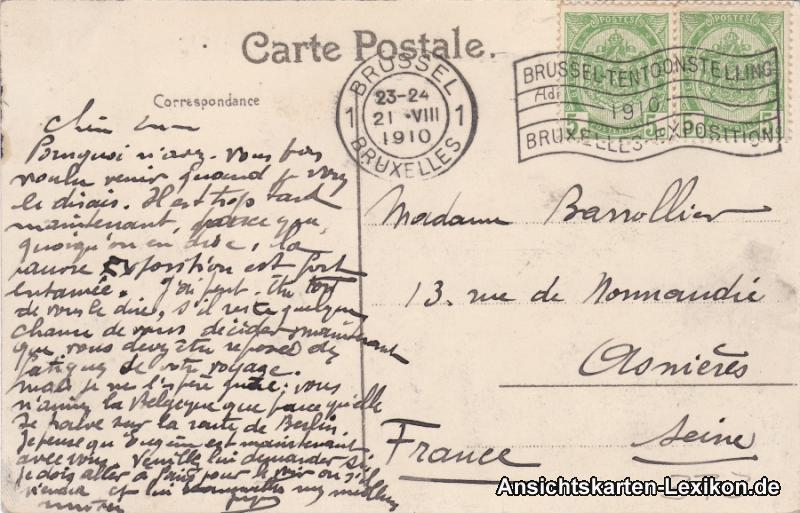 Carte Postale.
Correspondance
BRUSSEL
1 23-24 1
21 VIII
1910
BRUXELLES
BRUSSEL-TENTOONSTELLING
1910
BRUXELLES-EXPOSITION
POSTES POSTES
5 5 5 5
Pourquoi n'avez-vous pas
voulu venir quand je vous
le disais. Il est trop tard
maintenant, parce que,
quoiqu'on en dise, la
pauvre Exposition est fort
entamée. J'ai peut-être tort
de vous le dire, s'il reste quelque
chance de vous décider maintenant
que vous devez être reposés des
fatigues de votre voyage.
mais je ne l'espère guère; vous
n'aimez la Belgique que parce qu'elle
se trouve sur la route de Berlin.
Je pense qu'Eugène est maintenant
avec vous. Veuillez lui demander si
je dois aller à Paris pour le voir ou s'il
viendra et lui mes meilleurs
Madame Barrollier
13. rue de Normandie
Asnières
Seine
France
Ansichtskarten-Lexikon.de